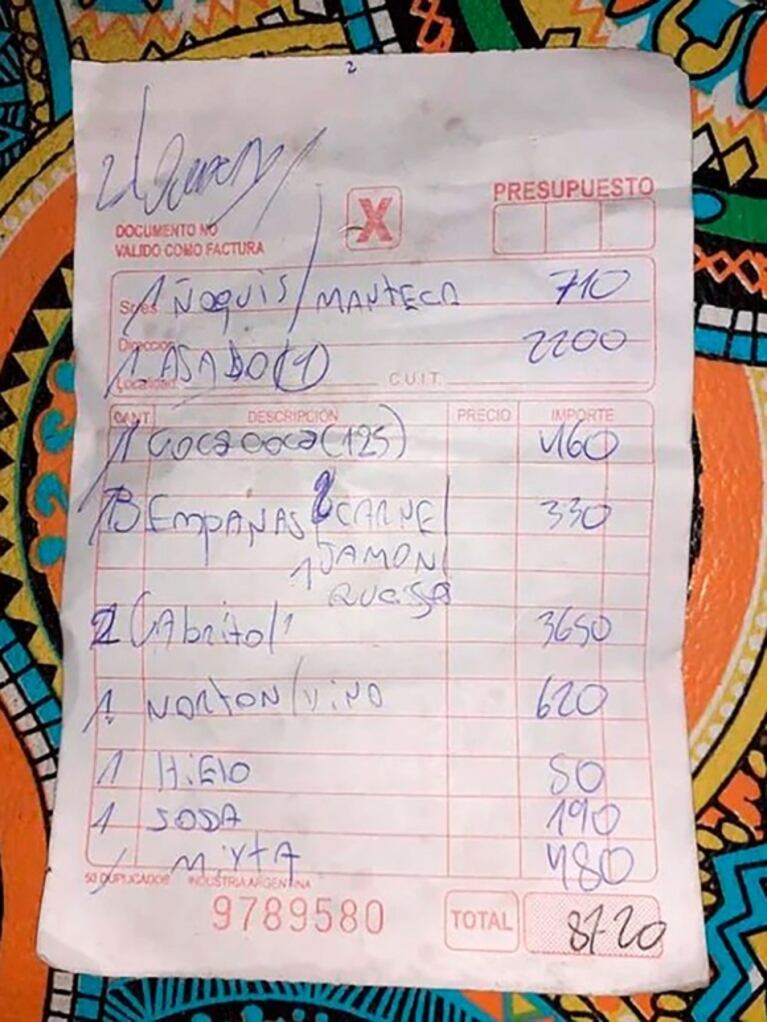 2
PRESUPUESTO
X
DOCUMENTO NO
VALIDO COMO FACTURA
Sres.
1 ÑOQUIS / MANTECA 710
Dirección
1 ASADO (1) 2200
Localidad C.U.I.T.
CANT. DESCRIPCIÓN PRECIO IMPORTE
1 COCA COCA (125) 460
3 EMPANAS 2 CARNE 330
1 JAMON
QUESO
2 CAbrito/1 3650
1 NORTON / VINO 620
1 HiElO 80
1 SODA 190
1 MiXTA 480
50 DUPLICADOS INDUSTRIA ARGENTINA
9789580
TOTAL 8720